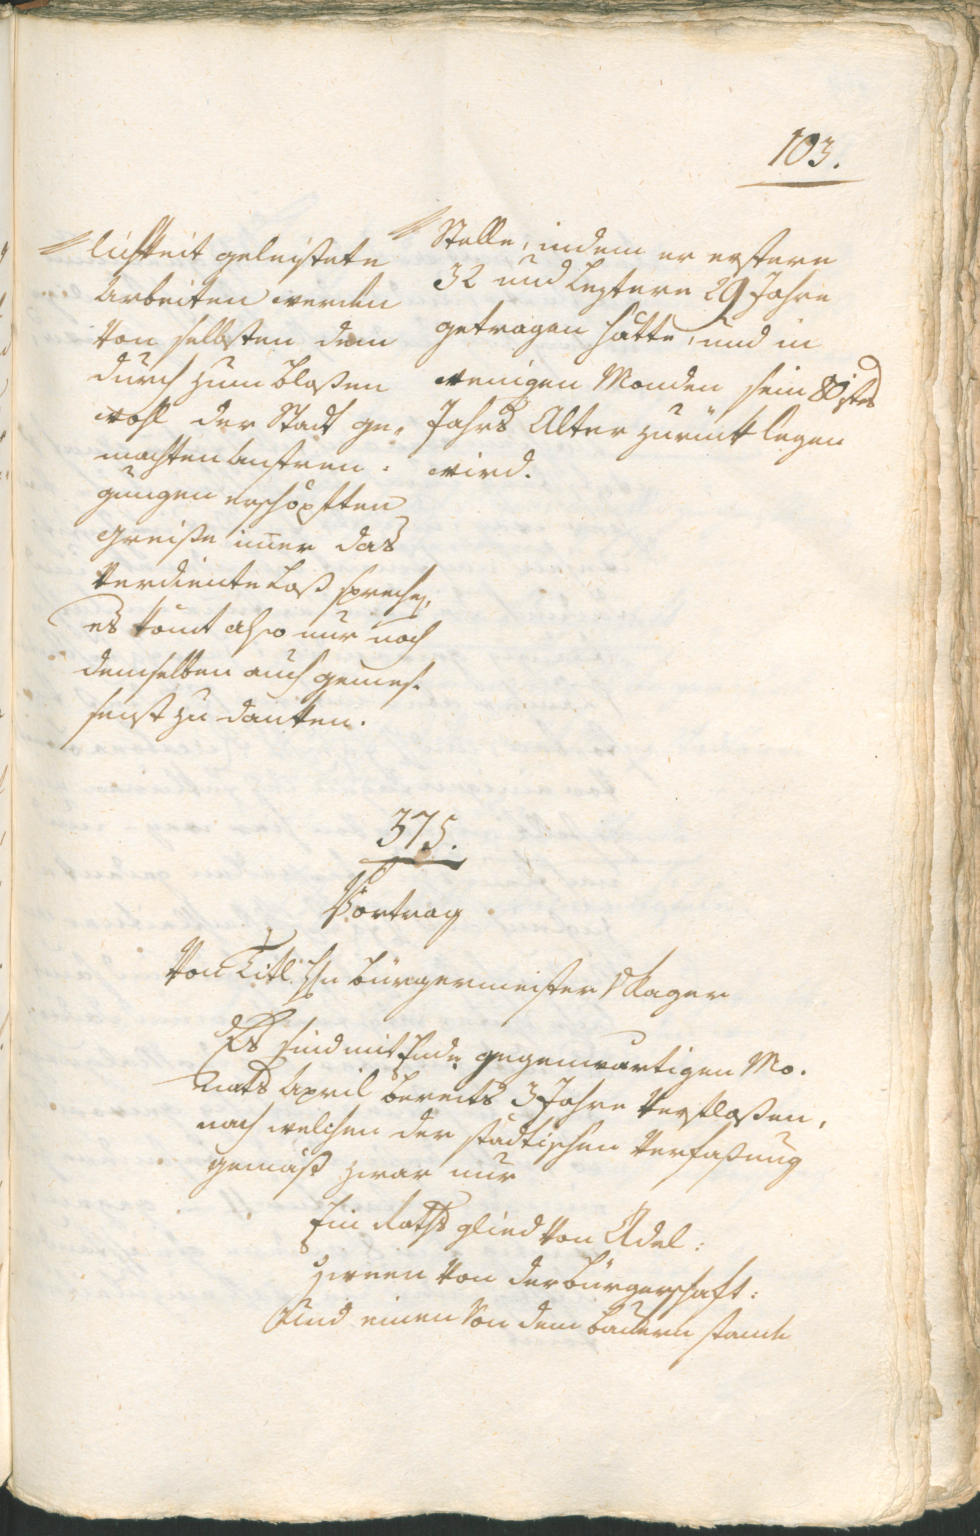 103.
lichkeit geleistete
Arbeiten werden
von selbsten dem
durch zum bloßen
wohl der Stadt ge„
machten Anstren„
gungen erschöpften
Greise im̄er das
verdiente Loß sprechen,
es kom̄t also nur noch
demselben auch gemes„
senst zu danken.
Stelle, indem er erstere
32 und leztere 29 Jahre
getragen hatte, und in
wenigen Monden sein 80stes
Jahrs Alter zurückt legen
wird.
375.
Vortrag
Von Titl. Hn Bürgermeister v Kager
Es sind mit Ende gegenwärtigen Mo„
nats April bereits 3 Jahre verfloßen,
nach welchen der städtischen Verfaßung
gemäß zwar nur
Ein Rathsglied von Adel:
zween von der Bürgerschaft:
Und einen von dem Bauern stande